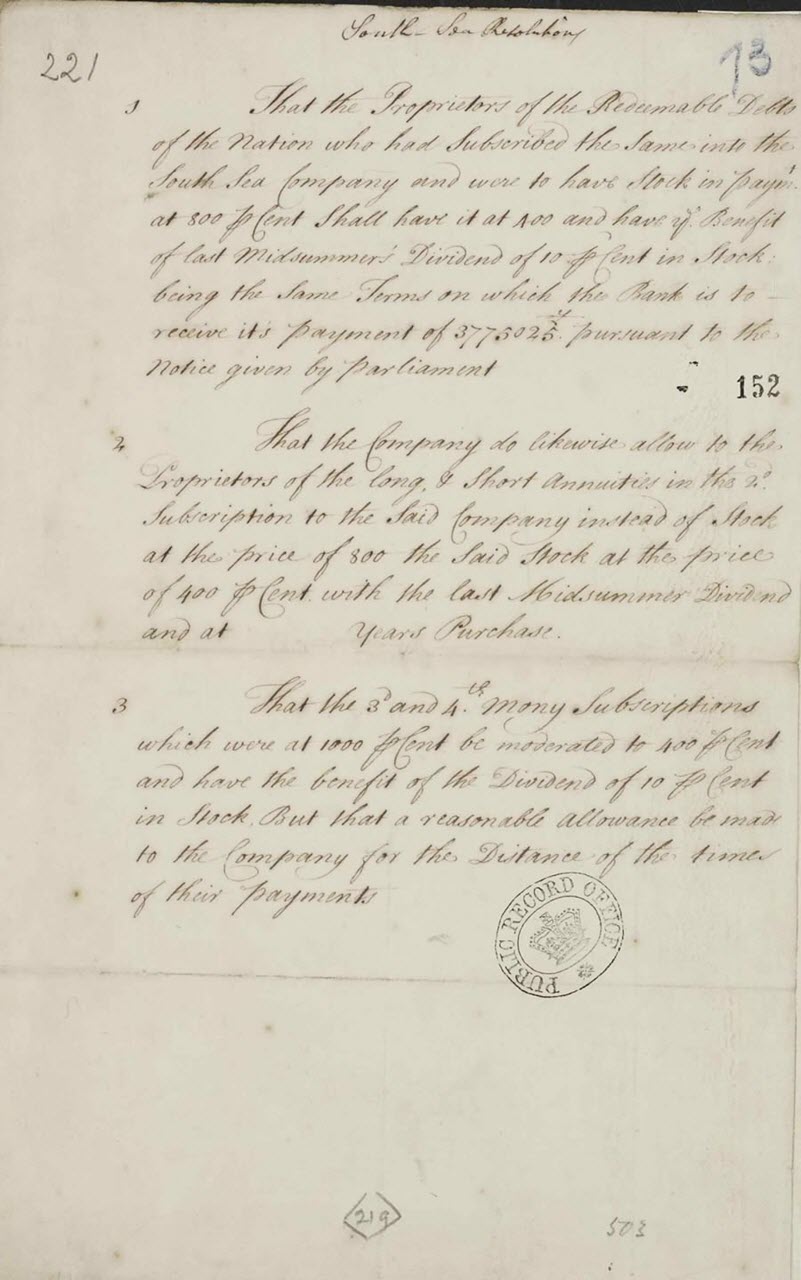 South-Sea Resolutions
221
73
1 That the Proprietors of the Redeemable Debts
of the Nation who had Subscribed the Same into the
South Sea Company and were to have Stock in paymt.
at 800 ⅌ Cent Shall have it at 400 and have ye. Benefit
of last Midsummer's Dividend of 10 ⅌ Cent in Stock.
being the Same Terms on which the Bank is to
receive it's payment of 3775025. pursuant to the
Notice given by Parliament
152
2 That the Company do likewise allow to the
Proprietors of the long, & Short Annuities in the 2d.
Subscription to the Said Company instead of Stock
at the price of 800 the Said Stock at the price
of 400 ⅌ Cent. with the last Midsummer Dividend
and at Years Purchase.
3 That the 3d and 4th. Mony Subscriptions
which were at 1000 ⅌ Cent be moderated to 400 ⅌ Cent
and have the benefit of the Dividend of 10 ⅌ Cent
in Stock. But that a reasonable allowance be made
to the Company for the Distance of the times
of their payments
PUBLIC RECORD OFFICE
219
503